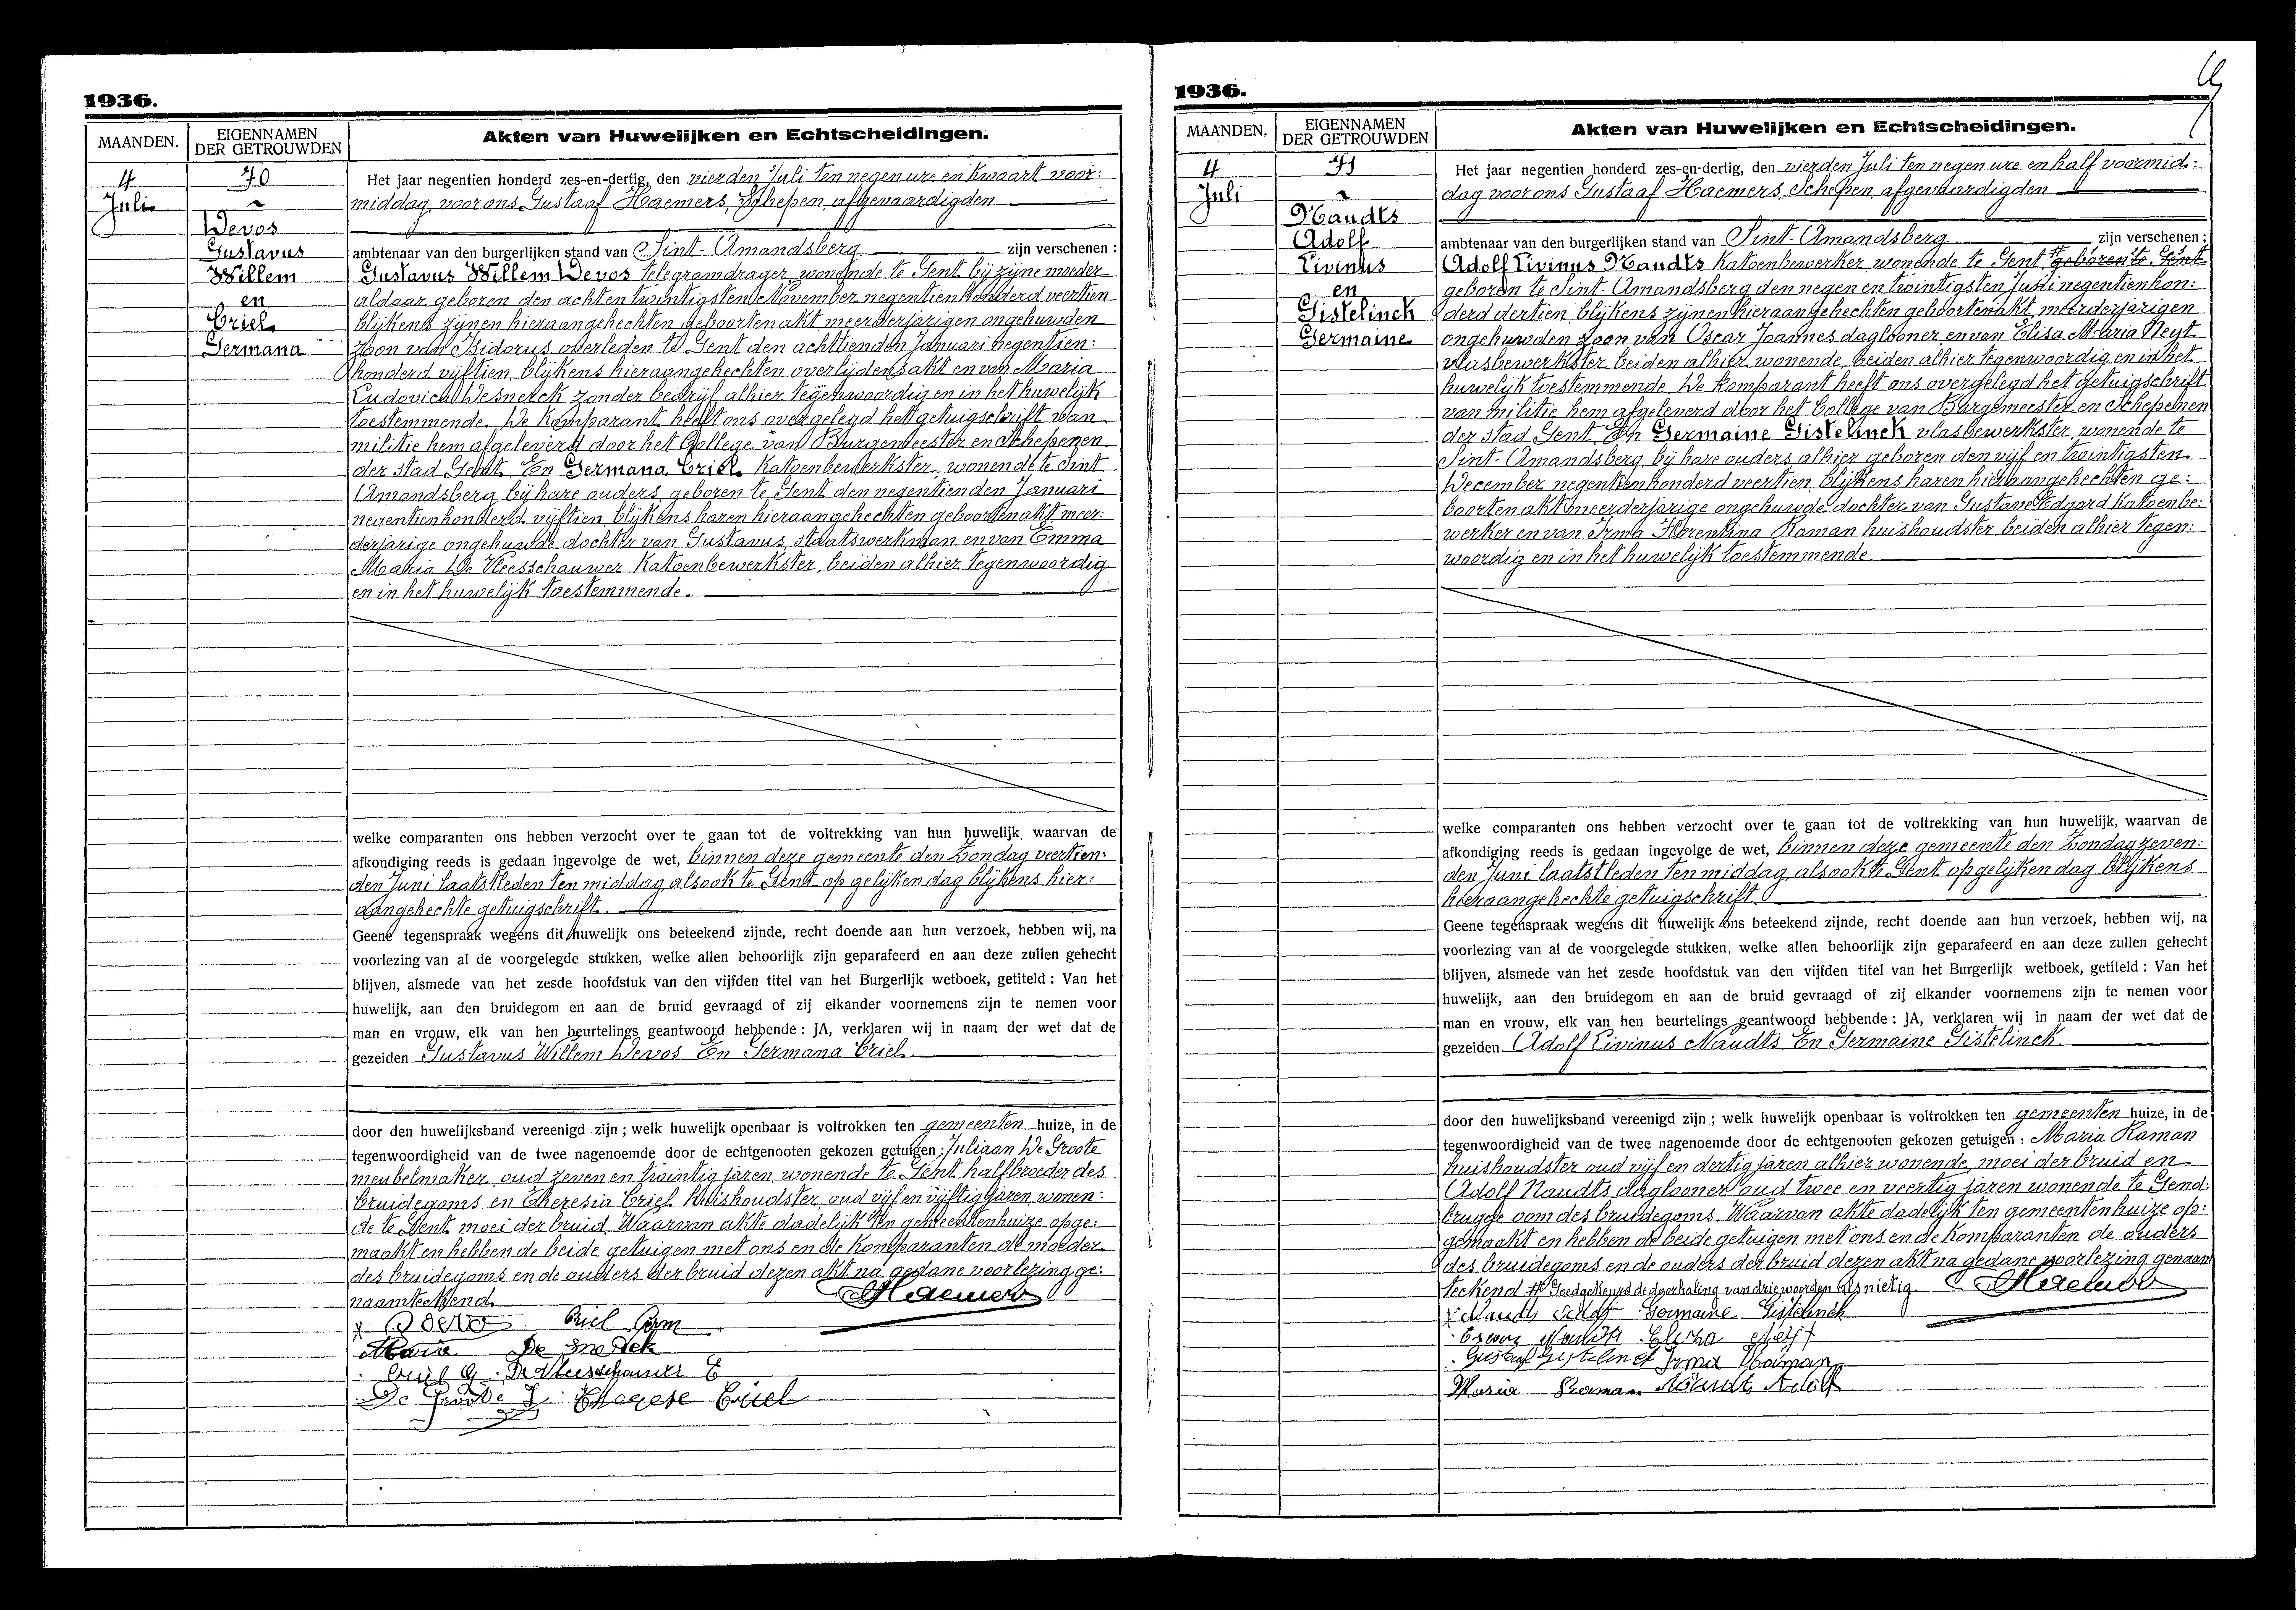 1936.
MAANDEN.
EIGENNAMEN
DER GETROUWDEN
Akten van Huwelijken en Echtscheidingen.
4
Juli
70
Devos
Gustavus
Willem
en
Criel
Germana
Het jaar negentien honderd zes-en-dertig, den vierden Juli ten negen ure en kwaart voor:
middag, voor ons Gustaaf Haemers, Schepen, afgevaardigden
ambtenaar van den burgerlijken stand van Sint-Amandsberg zijn verschenen :
Gustavus Willem Devos telegramdrager, wonende te Gent bij zijne moeder
aldaar geboren den achten twintigsten November negentienhonderd veertien
blijkens zijnen hieraangehechten geboortenakt meerderjarigen ongehuwden
zoon van Isidorus overleden te Gent den achttienden Januari negentien:
honderd vijftien blijkens hieraangehechten overlijdensakt en van Maria
Ludovica Desnerck zonder bedrijf alhier tegenwoordig en in het huwelijk
toestemmende. De komparant heeft ons overgelegd het getuigschrift van
militie hem afgeleverd door het College van Burgemeester en Schepenen
der stad Gent. En Germana Criel Katoenbewerkster, wonende te Sint
Amandsberg bij hare ouders, geboren te Gent den negentienden Januari
negentienhonderd vijftien blijkens haren hieraangehechten geboortenakt meer:
derjarige ongehuwde dochter van Gustavus, staatswerkman en van Emma
Maria De Vleesschauwer Katoenbewerkster, beiden alhier tegenwoordig
en in het huwelijk toestemmende.
welke comparanten ons hebben verzocht over te gaan tot de voltrekking van hun huwelijk, waarvan de
afkondiging reeds is gedaan ingevolge de wet, binnen deze gemeente den Zondag veertien:
den Juni laatstleden ten middag alsook te Gent op gelijken dag blijkens hier:
aangehechte getuigschrift.
Geene tegenspraak wegens dit huwelijk ons beteekend zijnde, recht doende aan hun verzoek, hebben wij, na
voorlezing van al de voorgelegde stukken, welke allen behoorlijk zijn geparafeerd en aan deze zullen gehecht
blijven, alsmede van het zesde hoofdstuk van den vijfden titel van het Burgerlijk wetboek, getiteld : Van het
huwelijk, aan den bruidegom en aan de bruid gevraagd of zij elkander voornemens zijn te nemen voor
man en vrouw, elk van hen beurtelings geantwoord hebbende : JA, verklaren wij in naam der wet dat de
gezeiden Gustavus Willem Devos En Germana Criel.
door den huwelijksband vereenigd zijn ; welk huwelijk openbaar is voltrokken ten gemeenten huize, in de
tegenwoordigheid van de twee nagenoemde door de echtgenooten gekozen getuigen : Juliaan De Groote
meubelmaker, oud zeven en twintig jaren, wonende te Gent halfbroeder des
bruidegoms en Theresia Criel huishoudster, oud vijf en vijftig jaren, wonen:
de te Gent moei der bruid. Waarvan akte dadelijk ten gemeentenhuize opge:
maakt en hebben de beide getuigen met ons en de komparanten de moeder
des bruidegoms en de ouders der bruid dezen akt na gedane voorlezing ge:
naamteekend.
Haemers
Criel Germ
Maria De Snerck
Criel G. De Vleeschauwer E
De Groote J. Therese Criel
1936.
MAANDEN.
EIGENNAMEN
DER GETROUWDEN
Akten van Huwelijken en Echtscheidingen.
4
Juli
71
Naudts
Adolf
Livinus
en
Gistelinck
Germaine
Het jaar negentien honderd zes-en-dertig, den vierden Juli ten negen ure en half voormid:
dag voor ons Gustaaf Haemers, Schepen, afgevaardigden
ambtenaar van den burgerlijken stand van Sint-Amandsberg zijn verschenen :
Adolf Livinus Naudts Katoenbewerker, wonende te Gent # geboren te Gent
geboren te Sint-Amandsberg den negen en twintigsten Juni negentienhon:
derd dertien blijkens zijnen hieraangehechten geboortenakt, meerderjarigen
ongehuwden zoon van Oscar Joannes daglooner en van Elisa Maria Neyt
vlasbewerkster beiden alhier wonende, beiden alhier tegenwoordig en in het
huwelijk toestemmende. De komparant heeft ons overgelegd het getuigschrift
van militie hem afgeleverd door het College van Burgemeester en Schepenen
der stad Gent. En Germaine Gistelinck vlasbewerkster, wonende te
Sint-Amandsberg bij hare ouders, alhier geboren den vijf en twintigsten
December negentienhonderd veertien blijkens haren hieraangehechten ge:
boortenakt meerderjarige ongehuwde dochter van Gustave Edgard Katoenbe:
werker en van Irma Florentina Raman huishoudster, beiden alhier tegen:
woordig en in het huwelijk toestemmende.
welke comparanten ons hebben verzocht over te gaan tot de voltrekking van hun huwelijk, waarvan de
afkondiging reeds is gedaan ingevolge de wet, binnen deze gemeente den Zondag zeven:
den Juni laatstleden ten middag, alsook te Gent op gelijken dag blijkens
hieraangehechte getuigschrift.
Geene tegenspraak wegens dit huwelijk ons beteekend zijnde, recht doende aan hun verzoek, hebben wij, na
voorlezing van al de voorgelegde stukken, welke allen behoorlijk zijn geparafeerd en aan deze zullen gehecht
blijven, alsmede van het zesde hoofdstuk van den vijfden titel van het Burgerlijk wetboek, getiteld : Van het
huwelijk, aan den bruidegom en aan de bruid gevraagd of zij elkander voornemens zijn te nemen voor
man en vrouw, elk van hen beurtelings geantwoord hebbende : JA, verklaren wij in naam der wet dat de
gezeiden Adolf Livinus Naudts En Germaine Gistelinck.
door den huwelijksband vereenigd zijn ; welk huwelijk openbaar is voltrokken ten gemeenten huize, in de
tegenwoordigheid van de twee nagenoemde door de echtgenooten gekozen getuigen : Maria Raman
huishoudster oud vijf en dertig jaren alhier wonende, moei der bruid en
Adolf Naudts daglooner oud twee en veertig jaren wonende te Gend:
brugge oom des bruidegoms. Waarvan akte dadelijk ten gemeentenhuize op:
gemaakt en hebben de beide getuigen met ons en de komparanten de ouders
des bruidegoms en de ouders der bruid dezen akt na gedane voorlezing genaam
teekend # Goedgekeurd de doorhaling van drie woorden als nietig. Haemers
Naudts Adolf Germaine Gistelinck
Oscar Naudts Eliza Neijt
Gustaaf Gistelinck Irma Raman
Maria Raman Naudts Adolf